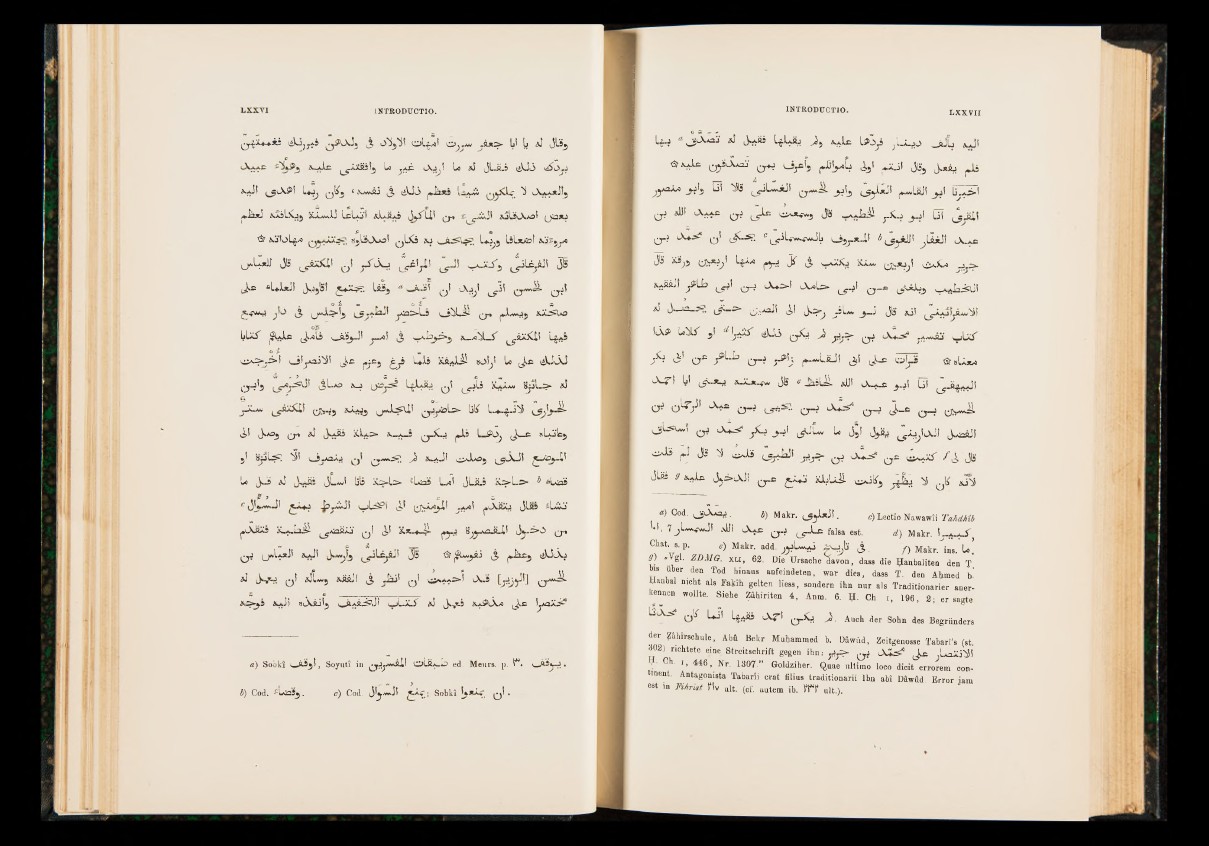 LXXVI INTRODUCTIO.
وقال له يا ابا جعفر سررت امّهات الاولاد ولدهنّ فبررنك فغممتهنّ
بردّك ذلك فقال له ما اريد غير ما وافقتنى عليه وهؤلاء عبيد
والعبيد لا يملكون شيئا فعظم ذلك فى نفسه، وكان ربّما اهدى اليه
بعض اصدقائه الشىء من المأكول فيقبله اتباعا للسنّة ويكافئه لعظم
مروءته اضعافا وربّما يجحف به فكان اصدقاؤه يجتنبون مهاداته ۞
قال الفرغانىّ وكتب الىّ المراغىّ يذكر ان المكتفى قال للعبّاس
ابن الحسن انّى اريد ان أقف a وقفا تجتمع اقاويل العلماء على
صحّته ويسلم من الخلاف فأحضر الطبرىّ وأجلس فى دار يسمع
فيها المكتفى كلامه وخوطب فى امر الوقوف فأملى عليهم كتابا
لذلك على ما اراده الخليفة فلمّا فرغ وعزم على الانصراف أخرجت
له جائزة سنيّة فأبى ان يقبلها به صافى وابن
الحوارىّ لانّهما كانا حاضرين المجلس وبينه وبين المكتفى ستر
وعاتباه على ردّها فلم يكن فيه حيلة فقيل له من وصل الى
الموضع الذى وصلت اليه لم يحسن ان ينصرف الّا بجائزة او
قضاء b حاجة فقال امّا قضاء حاجة فانا اسأل فقيل له قل ما
تشاء فقال يتقدّم امير المؤمنين الى اصحاب الشرط بمنع السؤال c
من دخول المقصورة يوم الجمعة الى ان تنقضى الخطبة فتقدّم
بذلك وعظم فى نفوسهم ۞ قال الفرغانىّ وأرسل اليه العبّاس بن
الحسن [الوزير] قد احببت ان انظر فى الفقه وسأله ان يعمل له
مختصرا على مذهبه فعمل له كتاب الخفيف وأنفذه اليه فوجّه
a) Sobkî اوقف, Soyutî in طبقات المفسرين ed. Meurs. p. ٣٠ يوقف.
b) Cod. وقضاء. c) Cod. يمنع السوال; Sobkî ان يمنعوا.
INTRODUCTIO. LXXVII
اليه بألف دينار فردّها عليه ولم يقبلها فقيل له تصدّق a بها
فلم يفعل وقال انتم اولى بأموالكم وأعرف بمن تصدّقون عليه ۞
اخبرنا ابو القاسم العلوىّ وابو الحسن الغسّانىّ قالا نا وابو منصور
المقرئ انا ابو بكر الخطيب قال وسمعت علىّ بن عبيد الله بن
عبد الغفّار اللغوىّ b المعروف بالسمسمانىّ c يحكى ان محمّد بن
جرير مكث اربعين سنة يكتب فى كلّ يوم منها اربعين ورقة قال
الخطيب وبلغنى عن ابى حامد احمد بن ابى طاهر الفقيه
الاسفرائينىّ انه قال لو سافر رجل الى الصين حتى يحصل له
كتاب تفسير محمّد بن جرير لم يكن ذلك كثيرا d او كلاما هذا
معناه ۞ قرأت على ابى القاسم زاهر بن طاهر عن ابى بكر
البيهقىّ انا ابو عبد الله الحافظ e قال سمعته يعنى ابا احمد
الحسين بن علىّ بن محمّد بن يحيى بن عبد الرحمان بن
الفضل الدارينىّ يقول اوّل ما سألنى ابو بكر محمّد بن اسحاق
قال لى f كتبت عن محمّد بن جرير الطبرىّ قلت لا قال لم قلت
لانّه كان لا يظهر وكانت الحنابلة تمنع عن الدخول عليه g فقال
a) Cod. b) Makr. العلوى. c) Lectio Nawawîi Tahdhîb
١٠١, 7 على بن عبد الله السمسار falsa est. d) Makr. كبيرا,
Chat. s. p. e) Makr. add. فى تاريخ نيسابور. f) Makr. ins. ما.
g) „Vgl. ZDMG. XLI, 62. Die Ursache davon, dass die Ḥanbaliten den T.
bis über den Tod hinaus anfeindeten, war dies, dass T. den Aḥmed b.
Ḥanbal nicht als Faḳîh gelten liess, sondern ihn nur als Traditionarier aner-
kennen wollte. Siehe Ẓâhiriten 4, Anm. 6. Ḥ. Ch. I, 196, 2; er sagte
لم يكن احمد فقيها انما كان محدثا. Auch der Sohn des Begründers
der Ẓâhirschule, Abû Bekr Muḥammed b. Dâwûd, Zeitgenosse Ṭabarî's (st.
302) richtete eine Streitschrift gegen ihn: الانتصار على محمد بن جرير
Ḥ. Ch. I, 446, Nr. 1307" Goldziher. Quae ultimo loco dicit errorem con-
tinent. Antagonista Ṭabarîi erat filius traditionarii Ibn abî Dâwûd. Error jam
est in Fihrist ٢١٧ ult. (cf. autem ib. ٢٣٢ ult.).